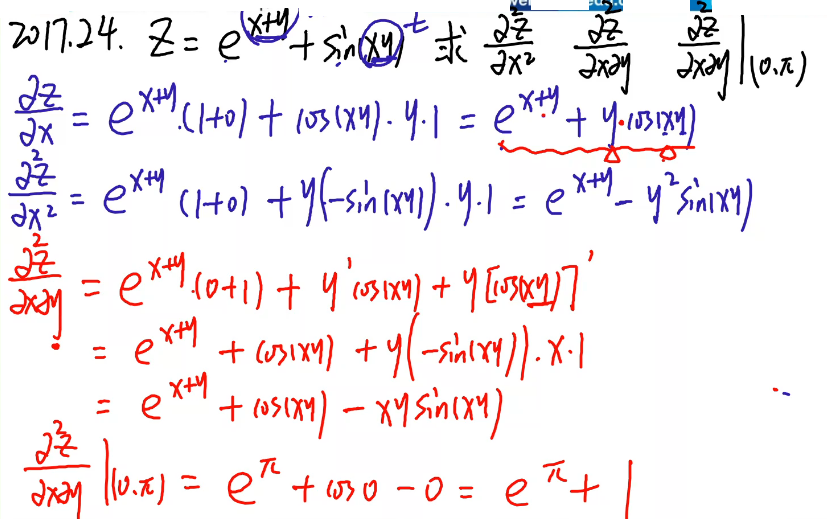 2017.24. Z = e^{x+y} + sin(xy) 求 ∂²z/∂x² ∂²z/∂x∂y ∂²z/∂x∂y|(0,π)
∂z/∂x = e^{x+y}·(1+0) + cos(xy)·y·1 = e^{x+y} + y·cos(xy)
∂²z/∂x² = e^{x+y} (1+0) + y(-sin(xy))·y·1 = e^{x+y} - y² sin(xy)
∂²z/∂x∂y = e^{x+y}·(0+1) + y' cos(xy) + y[cos(xy)]'
= e^{x+y} + cos(xy) + y(-sin(xy))·x·1
= e^{x+y} + cos(xy) - xy sin(xy)
∂²z/∂x∂y|(0,π) = e^π + cos0 - 0 = e^π + 1